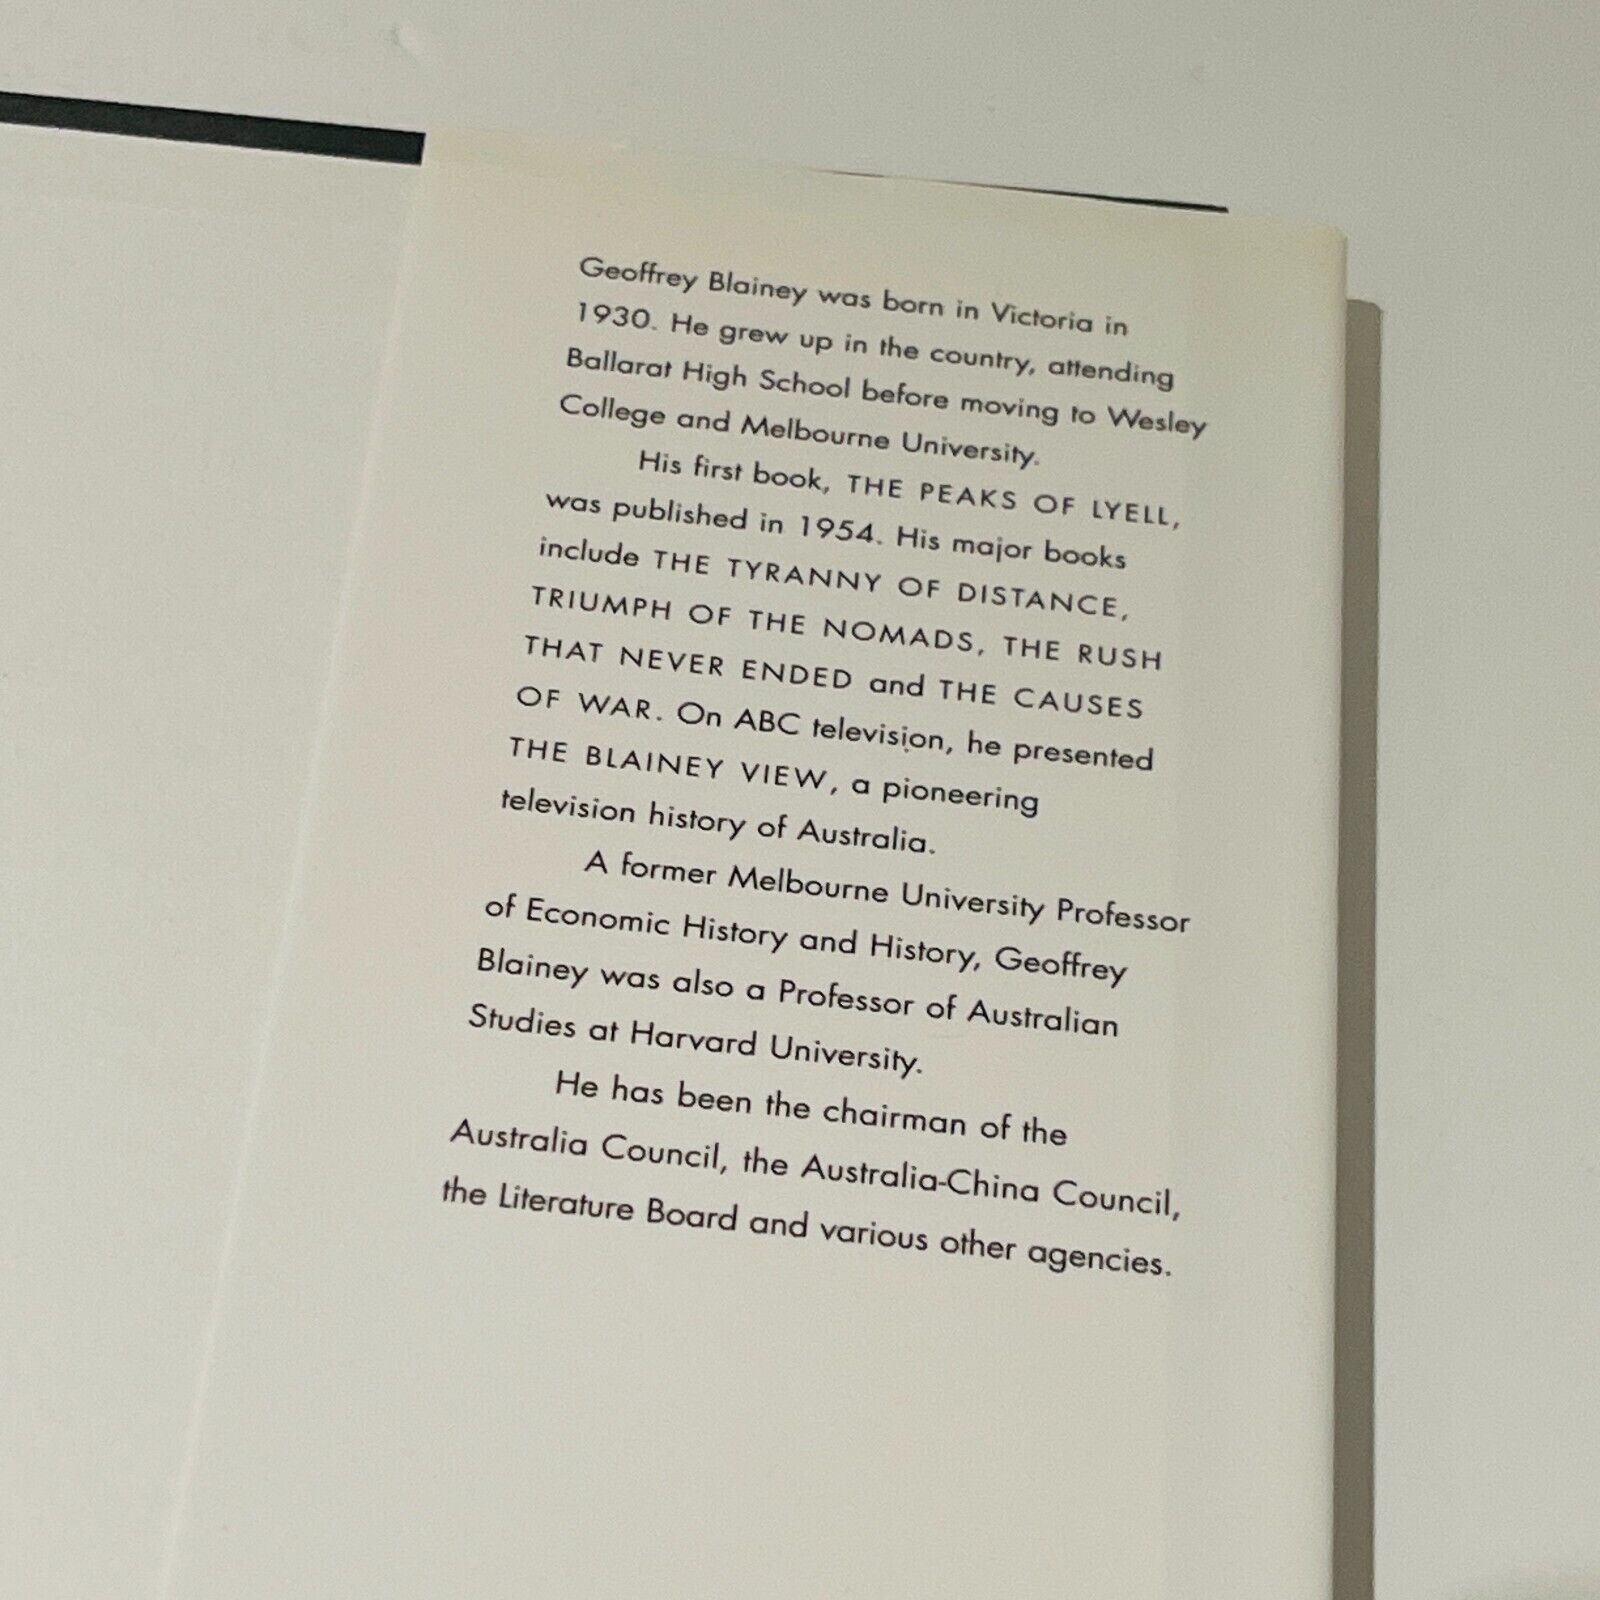 Geoffrey Blainey was born in Victoria in
1930. He grew up in the country, attending
Ballarat High School before moving to Wesley
College and Melbourne University.
His first book, THE PEAKS OF LYELL,
was published in 1954. His major books
include THE TYRANNY OF DISTANCE,
TRIUMPH OF THE NOMADS, THE RUSH
THAT NEVER ENDED and THE CAUSES
OF WAR. On ABC television, he presented
THE BLAINEY VIEW, a pioneering
television history of Australia.
A former Melbourne University Professor
of Economic History and History, Geoffrey
Blainey was also a Professor of Australian
Studies at Harvard University.
He has been the chairman of the
Australia Council, the Australia-China Council,
the Literature Board and various other agencies.